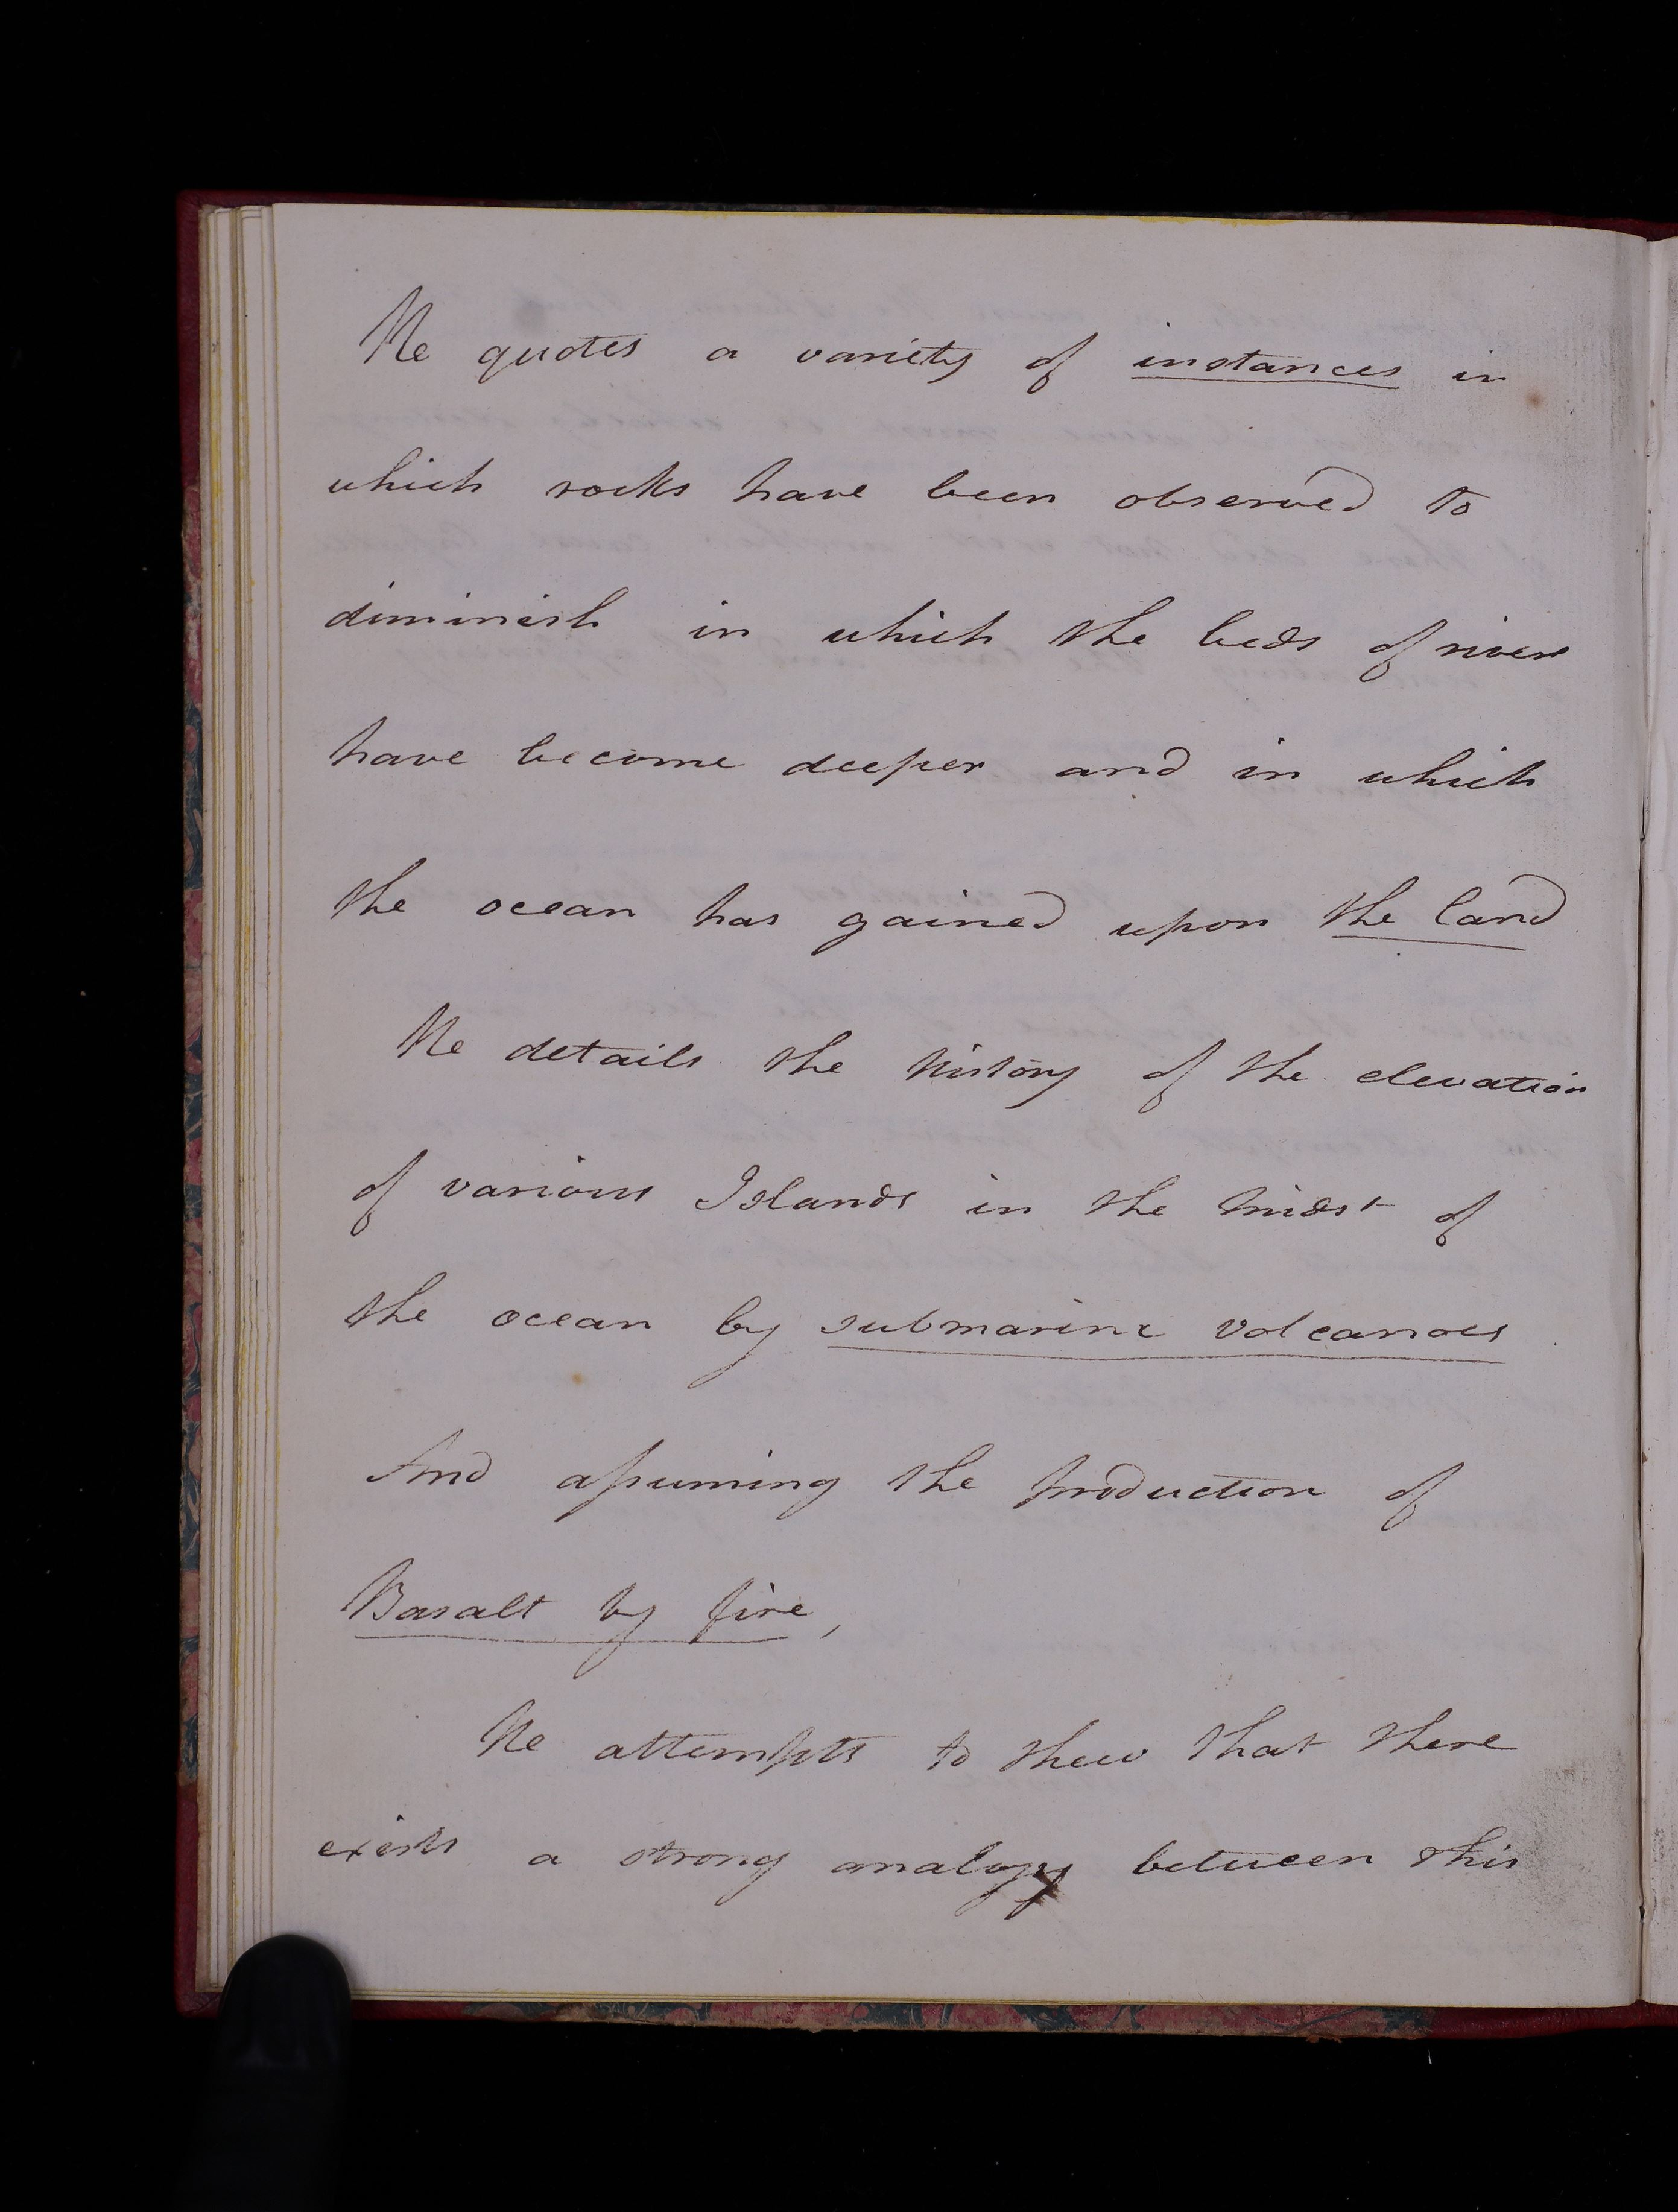 He quotes a variety of instances in
which rocks have been observed to
diminish in which the beds of rivers
have become deeper and in which
the ocean has gained upon the land
He details the history of the elevation
of various Islands in the midst of
the ocean by submarine volcanoes
And assuming the production of
Basalt by fire,
He attempts to shew that there
exists a strong analogy between this